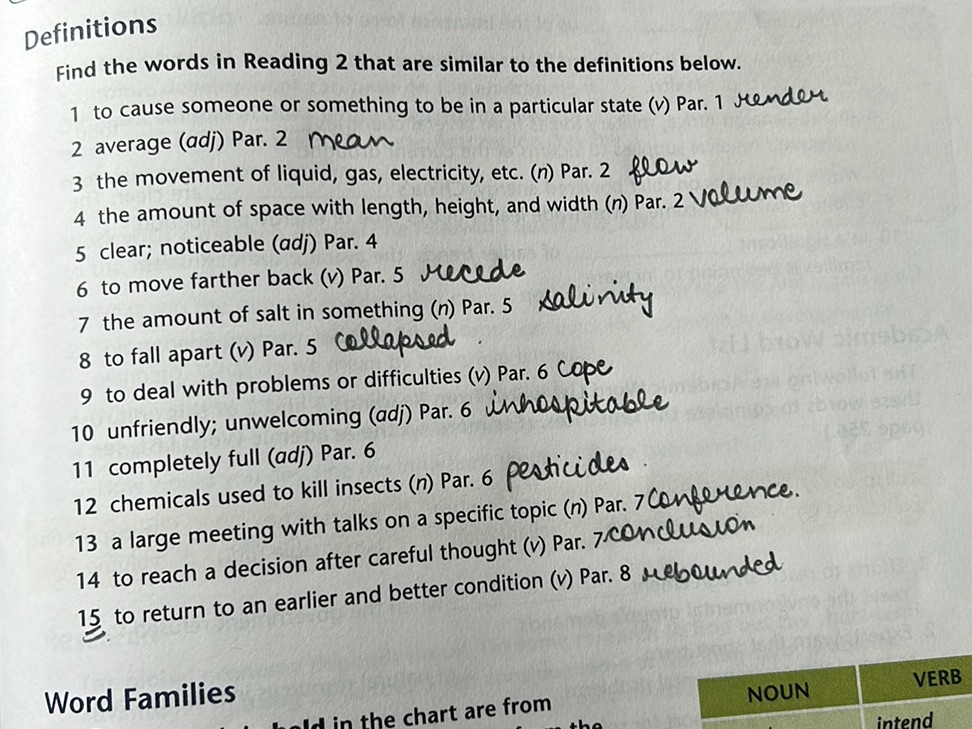 Definitions
Find the words in Reading 2 that are similar to the definitions below.
1 to cause someone or something to be in a particular state (v) Par. 1 render
2 average (adj) Par. 2 mean
3 the movement of liquid, gas, electricity, etc. (n) Par. 2 flow
4 the amount of space with length, height, and width (n) Par. 2 volume
5 clear; noticeable (adj) Par. 4
6 to move farther back (v) Par. 5 recede
7 the amount of salt in something (n) Par. 5 salinity
8 to fall apart (v) Par. 5 collapsed
9 to deal with problems or difficulties (v) Par. 6 cope
10 unfriendly; unwelcoming (adj) Par. 6 inhospitable
11 completely full (adj) Par. 6
12 chemicals used to kill insects (n) Par. 6 pesticides
13 a large meeting with talks on a specific topic (n) Par. 7 conference.
14 to reach a decision after careful thought (v) Par. 7 conclusion
15 to return to an earlier and better condition (v) Par. 8 rebounded
Word Families
in the chart are from
the
NOUN VERB
intend